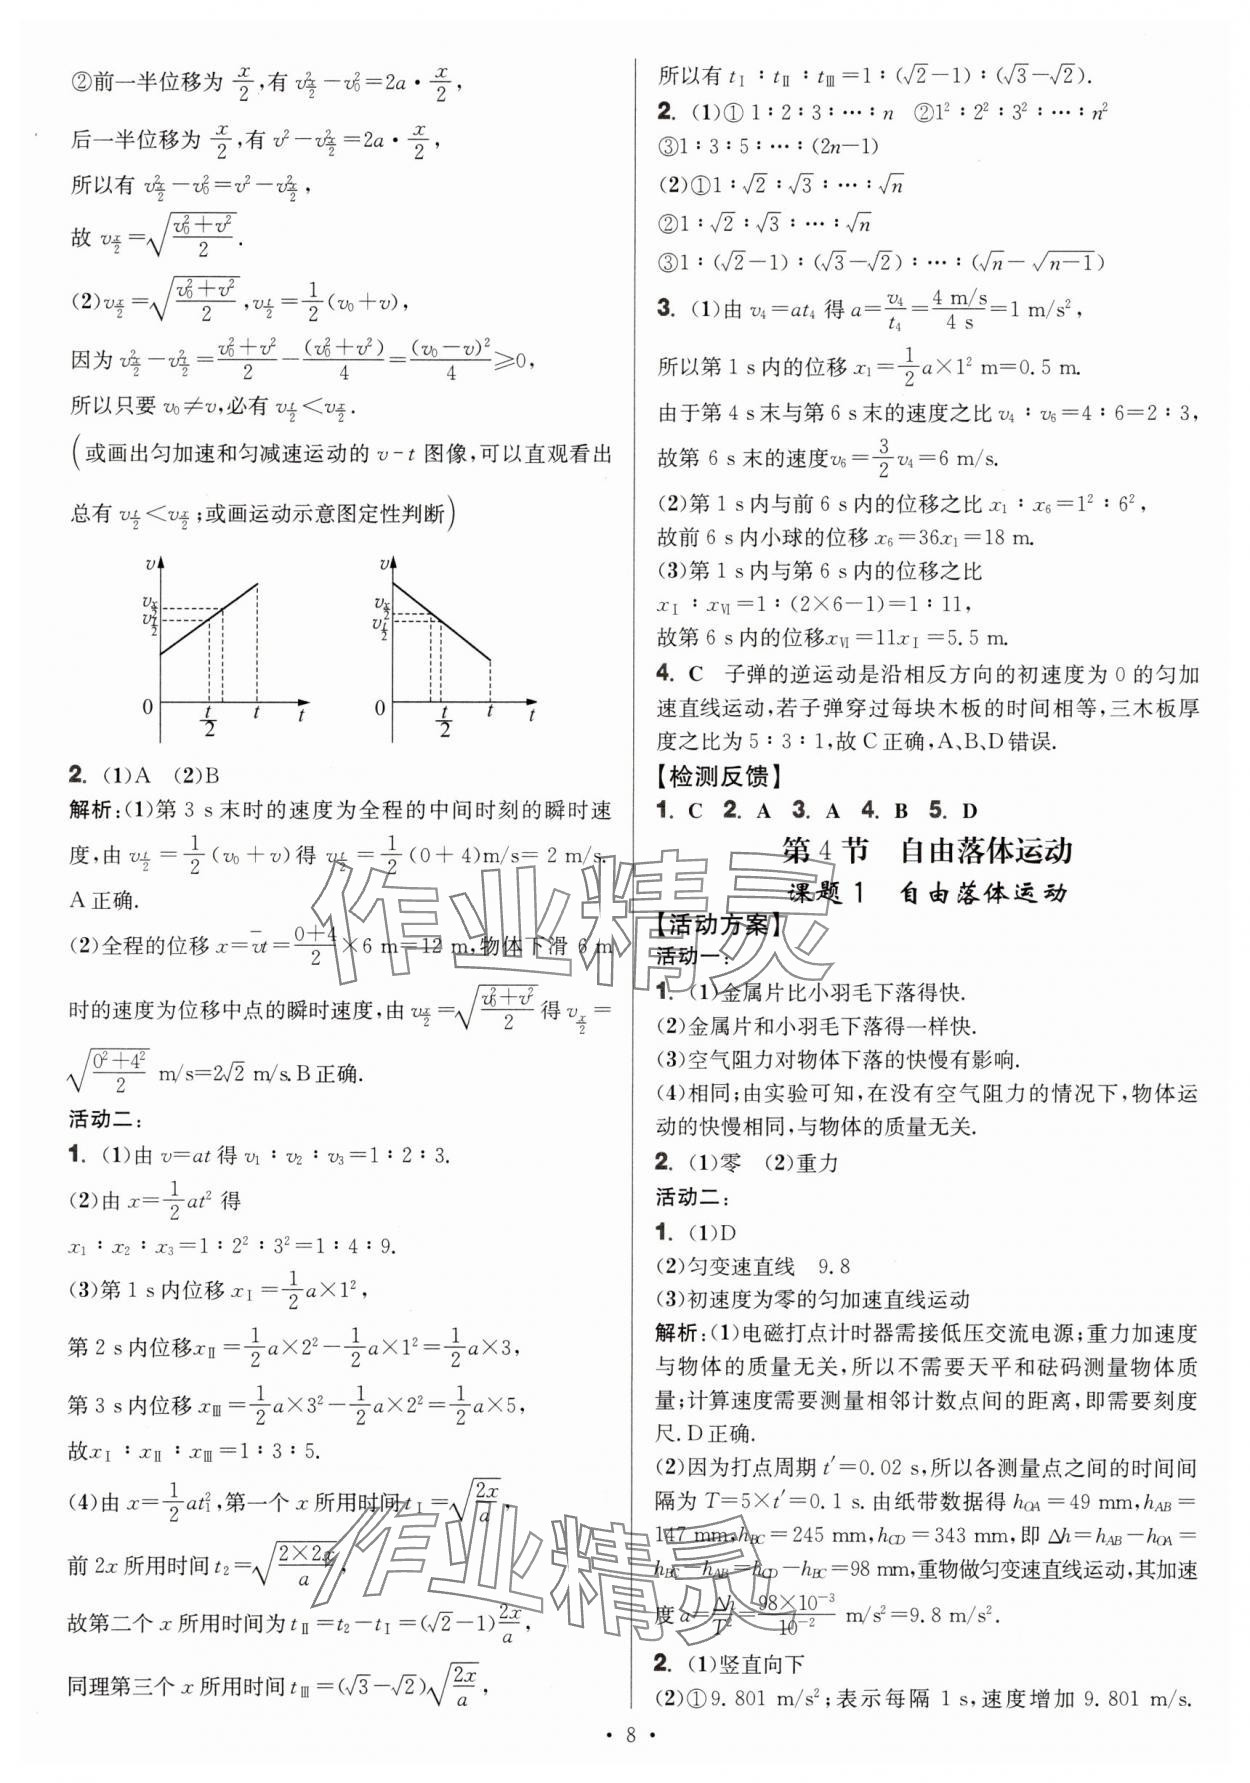 ②前一半位移为 x/2,有 v_{x/2}²−v₀²=2a·x/2,
后一半位移为 x/2,有 v²−v_{x/2}²=2a·x/2,
所以有 v_{x/2}²−v₀²=v²−v_{x/2}²,
故 v_{x/2}=√((v₀²+v²)/2).
(2)v_{x/2}=√((v₀²+v²)/2),v_{t/2}=1/2(v₀+v),
因为 v_{x/2}²−v_{t/2}²=(v₀²+v²)/2−(v₀²+v²)/4=(v₀−v)²/4≥0,
所以只要 v₀≠v,必有 v_{t/2}<v_{x/2}.
(或画出匀加速和匀减速运动的 v-t 图像,可以直观看出
总有 v_{t/2}<v_{x/2};或画运动示意图定性判断)
v v_{x/2} v_{t/2} 0 t/2 t t
v v_{x/2} v_{t/2} 0 t/2 t t
2. (1)A (2)B
解析:(1)第 3 s 末时的速度为全程的中间时刻的瞬时速
度,由 v_{t/2}=1/2(v₀+v)得 v_{t/2}=1/2(0+4)m/s=2 m/s.
A 正确.
(2)全程的位移 x=v̄t=(0+4)/2×6 m=12 m,物体下滑 6 m
时的速度为位移中点的瞬时速度,由 v_{x/2}=√((v₀²+v²)/2)得 v_{x/2}=
√((0²+4²)/2) m/s=2√2 m/s.B 正确.
活动二:
1. (1)由 v=at 得 v₁∶v₂∶v₃=1∶2∶3.
(2)由 x=1/2at² 得
x₁∶x₂∶x₃=1∶2²∶3²=1∶4∶9.
(3)第 1 s 内位移 x_Ⅰ=1/2a×1²,
第 2 s 内位移x_Ⅱ=1/2a×2²−1/2a×1²=1/2a×3,
第 3 s 内位移 x_Ⅲ=1/2a×3²−1/2a×2²=1/2a×5,
故x_Ⅰ∶x_Ⅱ∶x_Ⅲ=1∶3∶5.
(4)由 x=1/2at₁²,第一个 x 所用时间 t_Ⅰ=√(2x/a),
前 2x 所用时间 t₂=√(2×2x/a),
故第二个 x 所用时间为 t_Ⅱ=t₂−t_Ⅰ=(√2−1)√(2x/a),
同理第三个 x 所用时间 t_Ⅲ=(√3−√2)√(2x/a),
所以有 t_Ⅰ∶t_Ⅱ∶t_Ⅲ=1∶(√2−1)∶(√3−√2).
2. (1)① 1∶2∶3∶…∶n ②1²∶2²∶3²∶…∶n²
③1∶3∶5∶…∶(2n−1)
(2)①1∶√2∶√3∶…∶√n
②1∶√2∶√3∶…∶√n
③1∶(√2−1)∶(√3−√2)∶…∶(√n−√(n−1))
3. (1)由 v₄=at₄ 得 a=v₄/t₄=(4 m/s)/(4 s)=1 m/s²,
所以第 1 s 内的位移 x₁=1/2a×1² m=0.5 m.
由于第 4 s 末与第 6 s 末的速度之比 v₄∶v₆=4∶6=2∶3,
故第 6 s 末的速度v₆=3/2v₄=6 m/s.
(2)第 1 s 内与前 6 s 内的位移之比 x₁∶x₆=1²∶6²,
故前 6 s 内小球的位移 x₆=36x₁=18 m.
(3)第 1 s 内与第 6 s 内的位移之比
x_Ⅰ∶x_Ⅵ=1∶(2×6−1)=1∶11,
故第 6 s 内的位移x_Ⅵ=11x_Ⅰ=5.5 m.
4. C 子弹的逆运动是沿相反方向的初速度为 0 的匀加
速直线运动,若子弹穿过每块木板的时间相等,三木板厚
度之比为 5∶3∶1,故 C 正确,A、B、D 错误.
【检测反馈】
1. C 2. A 3. A 4. B 5. D
第 4 节 自由落体运动
课题 1 自由落体运动
【活动方案】
活动一:
1. (1)金属片比小羽毛下落得快.
(2)金属片和小羽毛下落得一样快.
(3)空气阻力对物体下落的快慢有影响.
(4)相同;由实验可知,在没有空气阻力的情况下,物体运
动的快慢相同,与物体的质量无关.
2. (1)零 (2)重力
活动二:
1. (1)D
(2)匀变速直线 9.8
(3)初速度为零的匀加速直线运动
解析:(1)电磁打点计时器需接低压交流电源;重力加速度
与物体的质量无关,所以不需要天平和砝码测量物体质
量;计算速度需要测量相邻计数点间的距离,即需要刻度
尺.D 正确.
(2)因为打点周期 t′=0.02 s,所以各测量点之间的时间间
隔为 T=5×t′=0.1 s.由纸带数据得 h_{OA}=49 mm,h_{AB}=
147 mm,h_{BC}=245 mm,h_{CD}=343 mm,即 Δh=h_{AB}−h_{OA}=
h_{BC}−h_{AB}=h_{CD}−h_{BC}=98 mm,重物做匀变速直线运动,其加速
度 a=Δh/T²=(98×10⁻³)/10⁻² m/s²=9.8 m/s².
2. (1)竖直向下
(2)①9.801 m/s²;表示每隔 1 s,速度增加 9.801 m/s.
· 8 ·
作业精灵
作业精灵